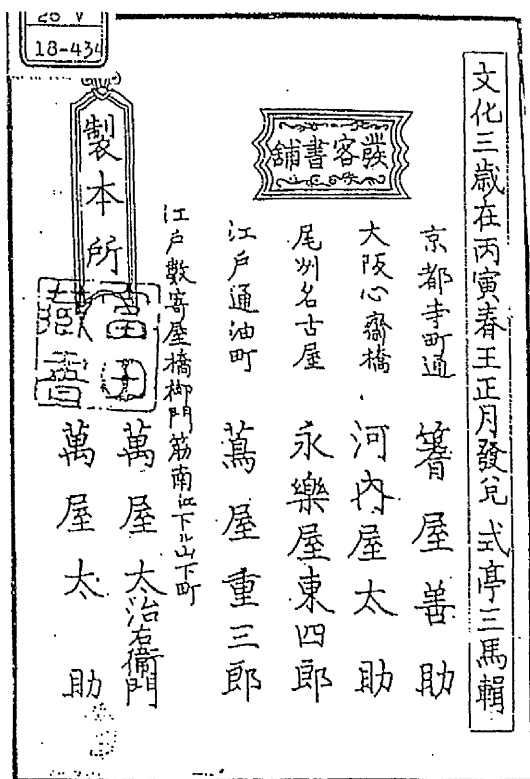 文化三歳在丙寅春王正月發兌 式亭三馬輯
發客書舖
京都寺町通 箸屋善助
大阪心齋橋 河内屋太助
尾州名古屋 永樂屋東四郎
江戸通油町 蔦屋重三郎
江戸數寄屋橋御門筋南江下ル山下町
萬屋太治右衞門
製本所 萬屋太助
18-434